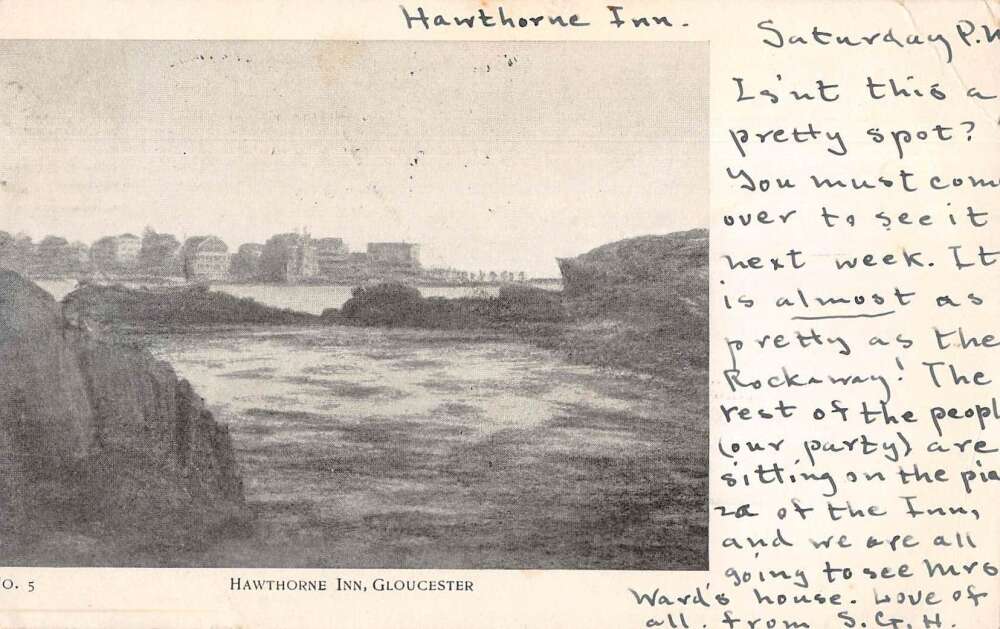 Hawthorne Inn.
Saturday P.M
Is'nt this a
pretty spot?
You must com
over to see it
next week. It
is almost as
pretty as the
Rockaway! The
rest of the peopl
(our party) are
sitting on the pia
za of the Inn,
and we are all
going to see Mrs
Ward's house. Love of
all. from S. G. H.
O. 5
HAWTHORNE INN, GLOUCESTER